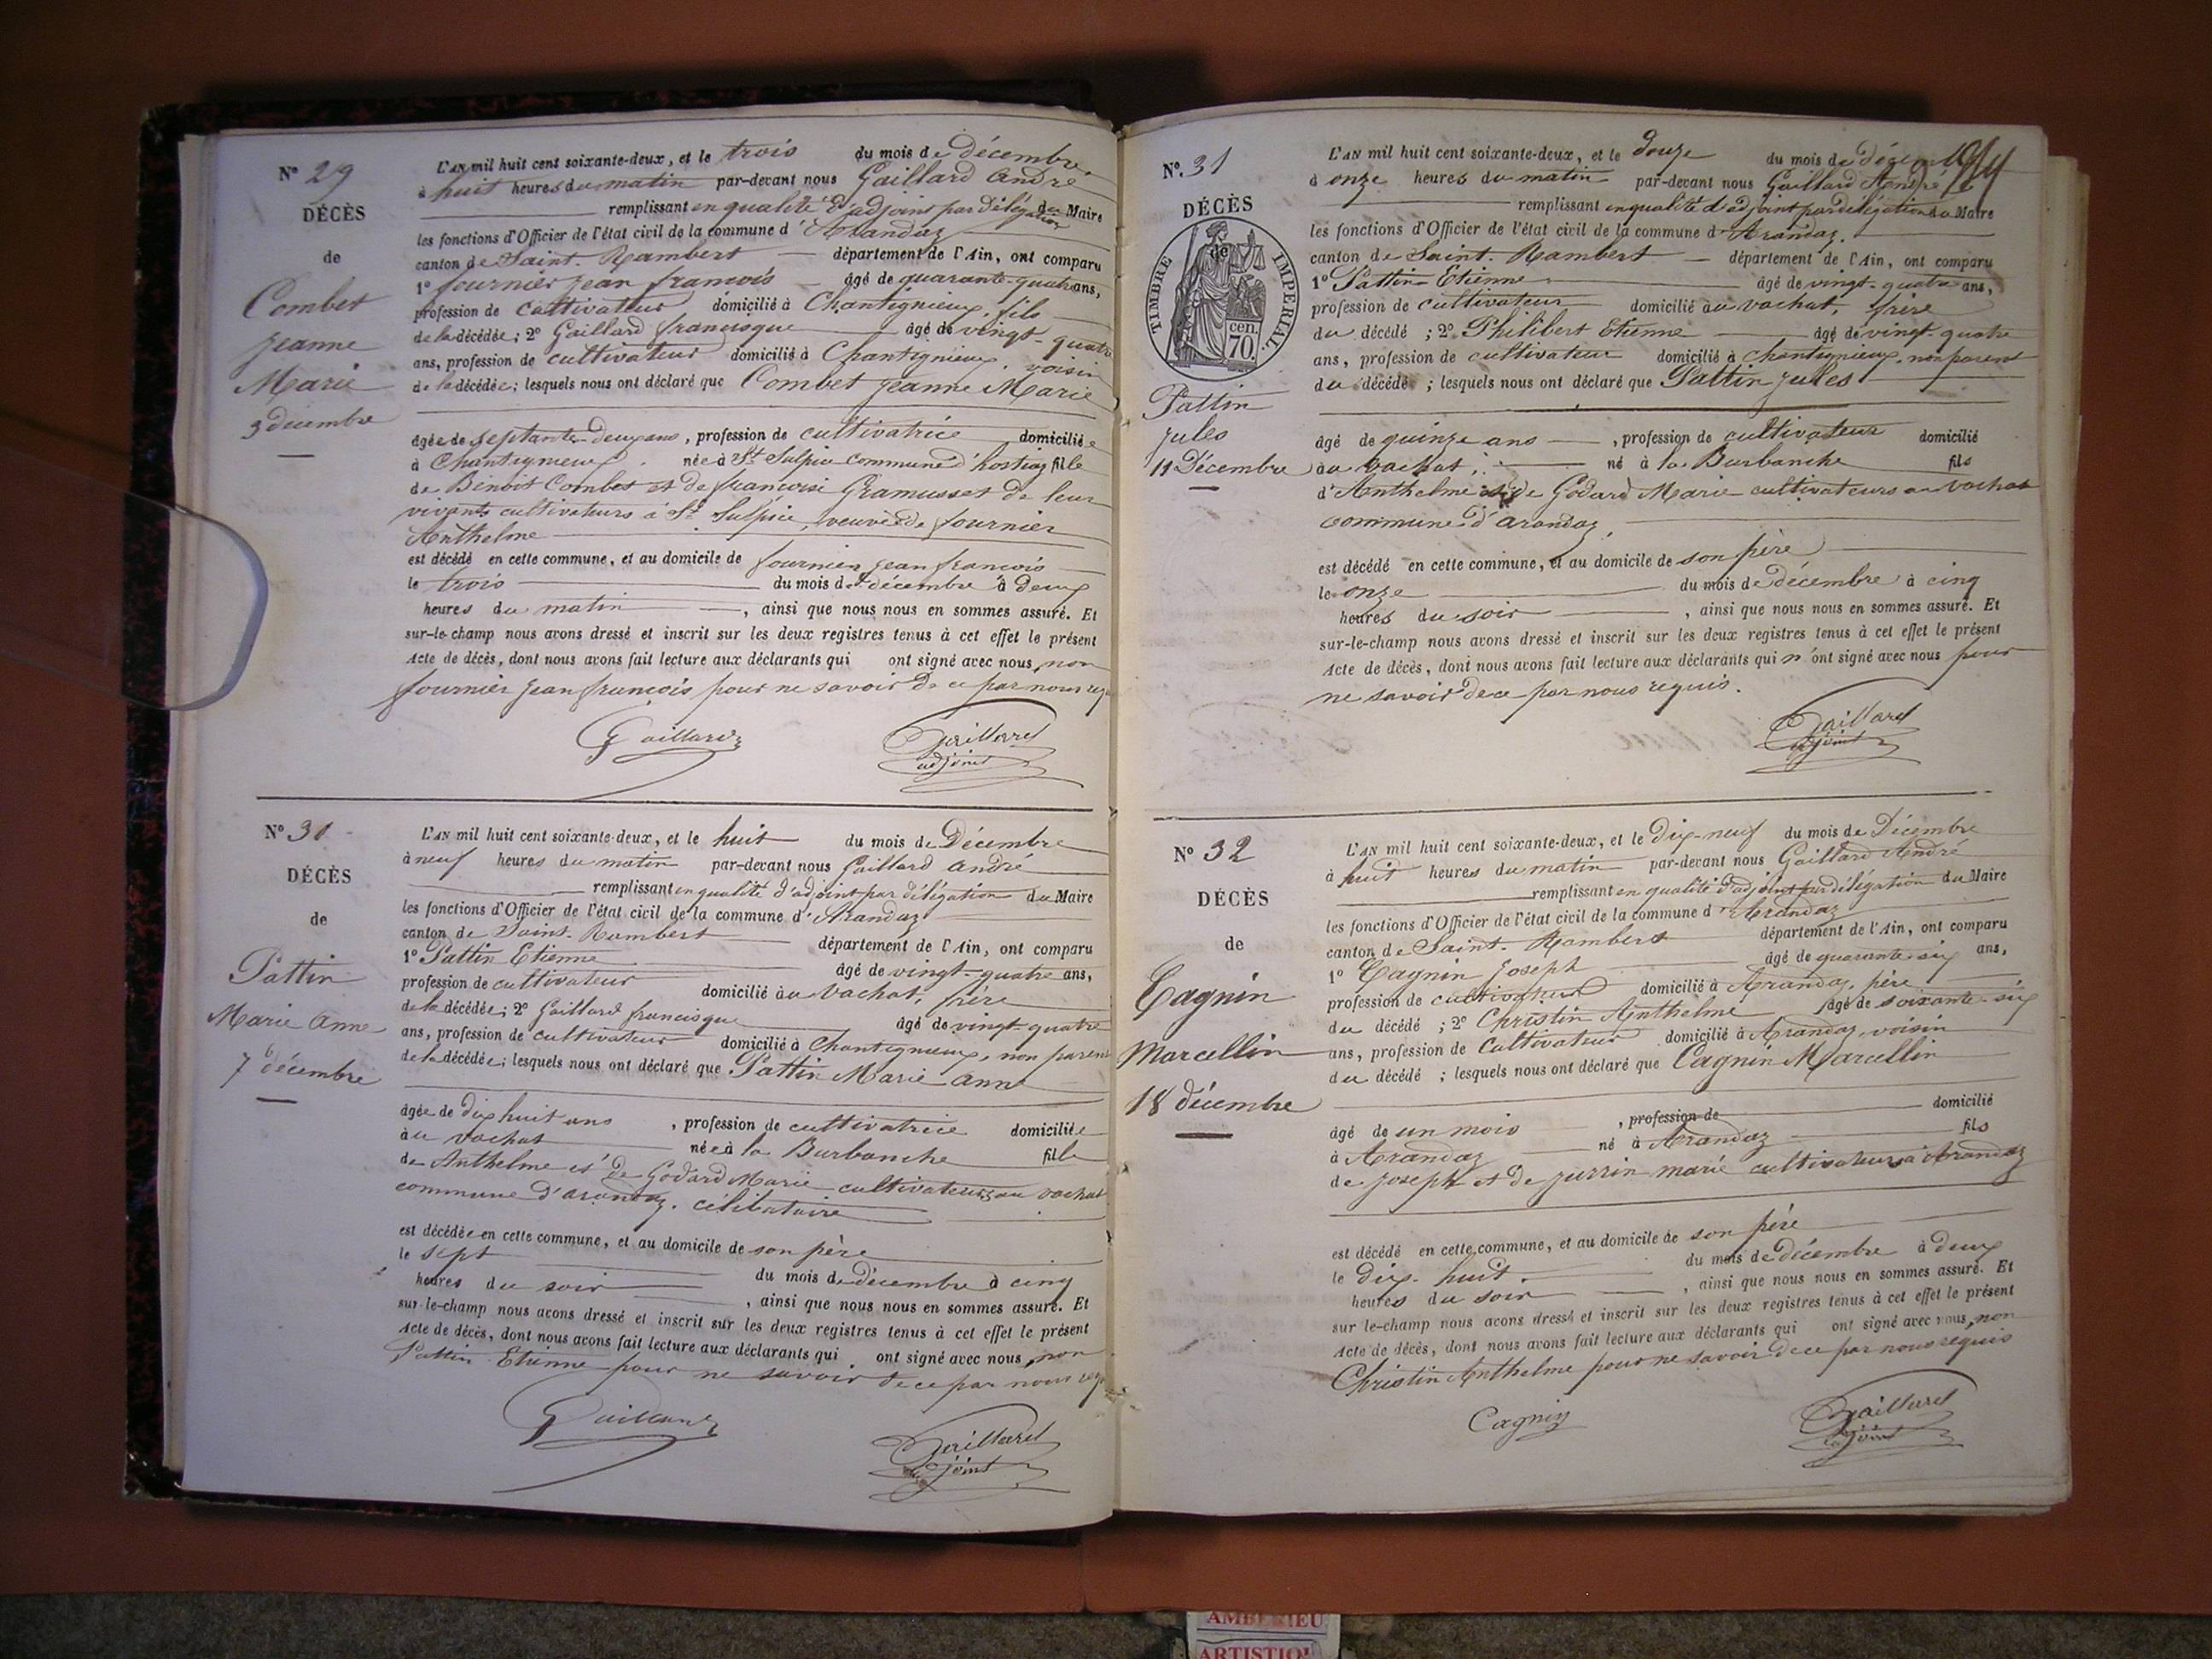 N° 29
DÉCÈS
de
Combet
Jeanne
Marie
3 décembre
L'AN mil huit cent soixante-deux, et le trois du mois de décembre
à huit heures du matin par-devant nous Gaillard André
remplissant en qualité d'adjoint par délégation du Maire
les fonctions d'Officier de l'état civil de la commune d'Arandaz
canton de Saint-Rambert département de l'Ain, ont comparu
1° fournier jean francois âgé de quarante-quatre ans,
profession de cultivateur domicilié à Chantignieux, fils
de la décédée ; 2° Gaillard francisque âgé de vingt-quatre
ans, profession de cultivateur domicilié à Chantignieux, voisin
de la décédée ; lesquels nous ont déclaré que Combet Jeanne Marie
âgée de septante-deux ans, profession de cultivatrice domiciliée
à Chantignieux née à St Sulpice commune d'hostiaz fille
de Benoit Combet et de francoise Gramusset de leur
vivants cultivateurs à St Sulpice, veuve de fournier
Anthelme
est décédé en cette commune, et au domicile de fournier jean francois
le trois du mois de décembre à deux
heures du matin , ainsi que nous nous en sommes assuré. Et
sur-le-champ nous avons dressé et inscrit sur les deux registres tenus à cet effet le présent
Acte de décès, dont nous avons fait lecture aux déclarants qui ont signé avec nous, non
fournier jean francois pour ne savoir de ce par nous req
Gaillard
Gaillard
adjoint
N° 30
DÉCÈS
de
Pattin
Marie Anne
7 décembre
L'AN mil huit cent soixante-deux, et le huit du mois de Décembre
à neuf heures du matin par-devant nous Gaillard André
remplissant en qualité d'adjoint par délégation du Maire
les fonctions d'Officier de l'état civil de la commune d'Arandaz
canton de Saint-Rambert département de l'Ain, ont comparu
1° Pattin Etienne âgé de vingt-quatre ans,
profession de cultivateur domicilié au vachat, frère
de la décédée ; 2° Gaillard francisque âgé de vingt-quatre
ans, profession de cultivateur domicilié à Chantignieux, non parent
de la décédée ; lesquels nous ont déclaré que Pattin Marie Anne
âgée de dix huit ans , profession de cultivatrice domiciliée
au vachat née à la Burbanche fille
de Anthelme et de Godard Marie cultivateurs au vachat
commune d'arandaz. célibataire
est décédée en cette commune, et au domicile de son père
le sept du mois de décembre à cinq
heures du soir , ainsi que nous nous en sommes assuré. Et
sur-le-champ nous avons dressé et inscrit sur les deux registres tenus à cet effet le présent
Acte de décès, dont nous avons fait lecture aux déclarants qui ont signé avec nous, non
Pattin Etienne pour ne savoir de ce par nous req
Gaillard
Gaillard
adjoint
N° 31
DÉCÈS
de
TIMBRE IMPERIAL
cen.
70.
Pattin
Jules
11 Décembre
L'AN mil huit cent soixante-deux, et le Douze du mois de
à onze heures du matin par-devant nous Gaillard André
remplissant en qualité d'adjoint par délégation du Maire
les fonctions d'Officier de l'état civil de la commune d'Arandaz.
canton de Saint-Rambert département de l'Ain, ont comparu
1° Pattin Etienne âgé de vingt-quatre ans,
profession de cultivateur domicilié au vachat, frère
du décédé ; 2° Philibert Etienne âgé de vingt-quatre
ans, profession de cultivateur domicilié à Chantignieux, non parent
du décédé ; lesquels nous ont déclaré que Pattin Jules
âgé de quinze ans , profession de cultivateur domicilié
au vachat, né à la Burbanche fils
d'Anthelme et de Godard Marie cultivateurs au vachat
commune d'arandaz,
est décédé en cette commune, et au domicile de son père
le onze du mois de décembre à cinq
heures du soir , ainsi que nous nous en sommes assuré. Et
sur-le-champ nous avons dressé et inscrit sur les deux registres tenus à cet effet le présent
Acte de décès, dont nous avons fait lecture aux déclarants qui n'ont signé avec nous pour
ne savoir de ce par nous requis.
Gaillard
adjoint
N° 32
DÉCÈS
de
Cagnin
Marcellin
18 décembre
L'AN mil huit cent soixante-deux, et le Dix-neuf du mois de Décembre
à huit heures du matin par-devant nous Gaillard André
remplissant en qualité d'adjoint par délégation du Maire
les fonctions d'Officier de l'état civil de la commune d'Arandaz
canton de Saint-Rambert département de l'Ain, ont comparu
1° Cagnin Joseph âgé de quarante six ans,
profession de cultivateur domicilié à Arandaz, père
du décédé ; 2° Christin Anthelme âgé de soixante-six
ans, profession de Cultivateur domicilié à Arandaz, voisin
du décédé ; lesquels nous ont déclaré que Cagnin Marcellin
âgé de un mois , profession de domicilié
à Arandaz né à Arandaz fils
de joseph et de jurrin marie cultivateurs à Arandaz
est décédé en cette commune, et au domicile de son père
le dix-huit. du mois de décembre à deux
heures du soir , ainsi que nous nous en sommes assuré. Et
sur le-champ nous avons dressé et inscrit sur les deux registres tenus à cet effet le présent
Acte de décès, dont nous avons fait lecture aux déclarants qui ont signé avec nous, non
Christin Anthelme pour ne savoir de ce par nous requis
Cagnin
Gaillard
adjoint
AMBERIEU